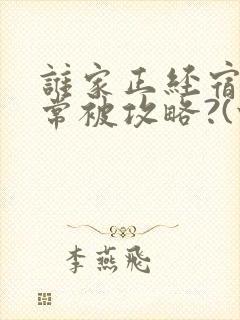 誰家正経宿
常被攻略?(
李燕飛